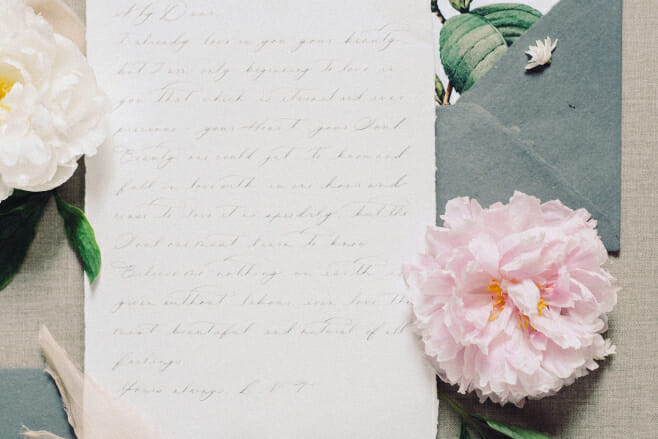 My Dear,
I already love in you your beauty,
but I am only beginning to love in
you that which is eternal and ever
precious - your Heart, your Soul.
Beauty one could get to know and
fall in love with in one hour and
cease to love it as speedily, but the
Soul one must learn to know.
Believe me, nothing on earth is
given without labour, even love, the
most beautiful and natural of all
feelings.
Yours always, L. N. T.